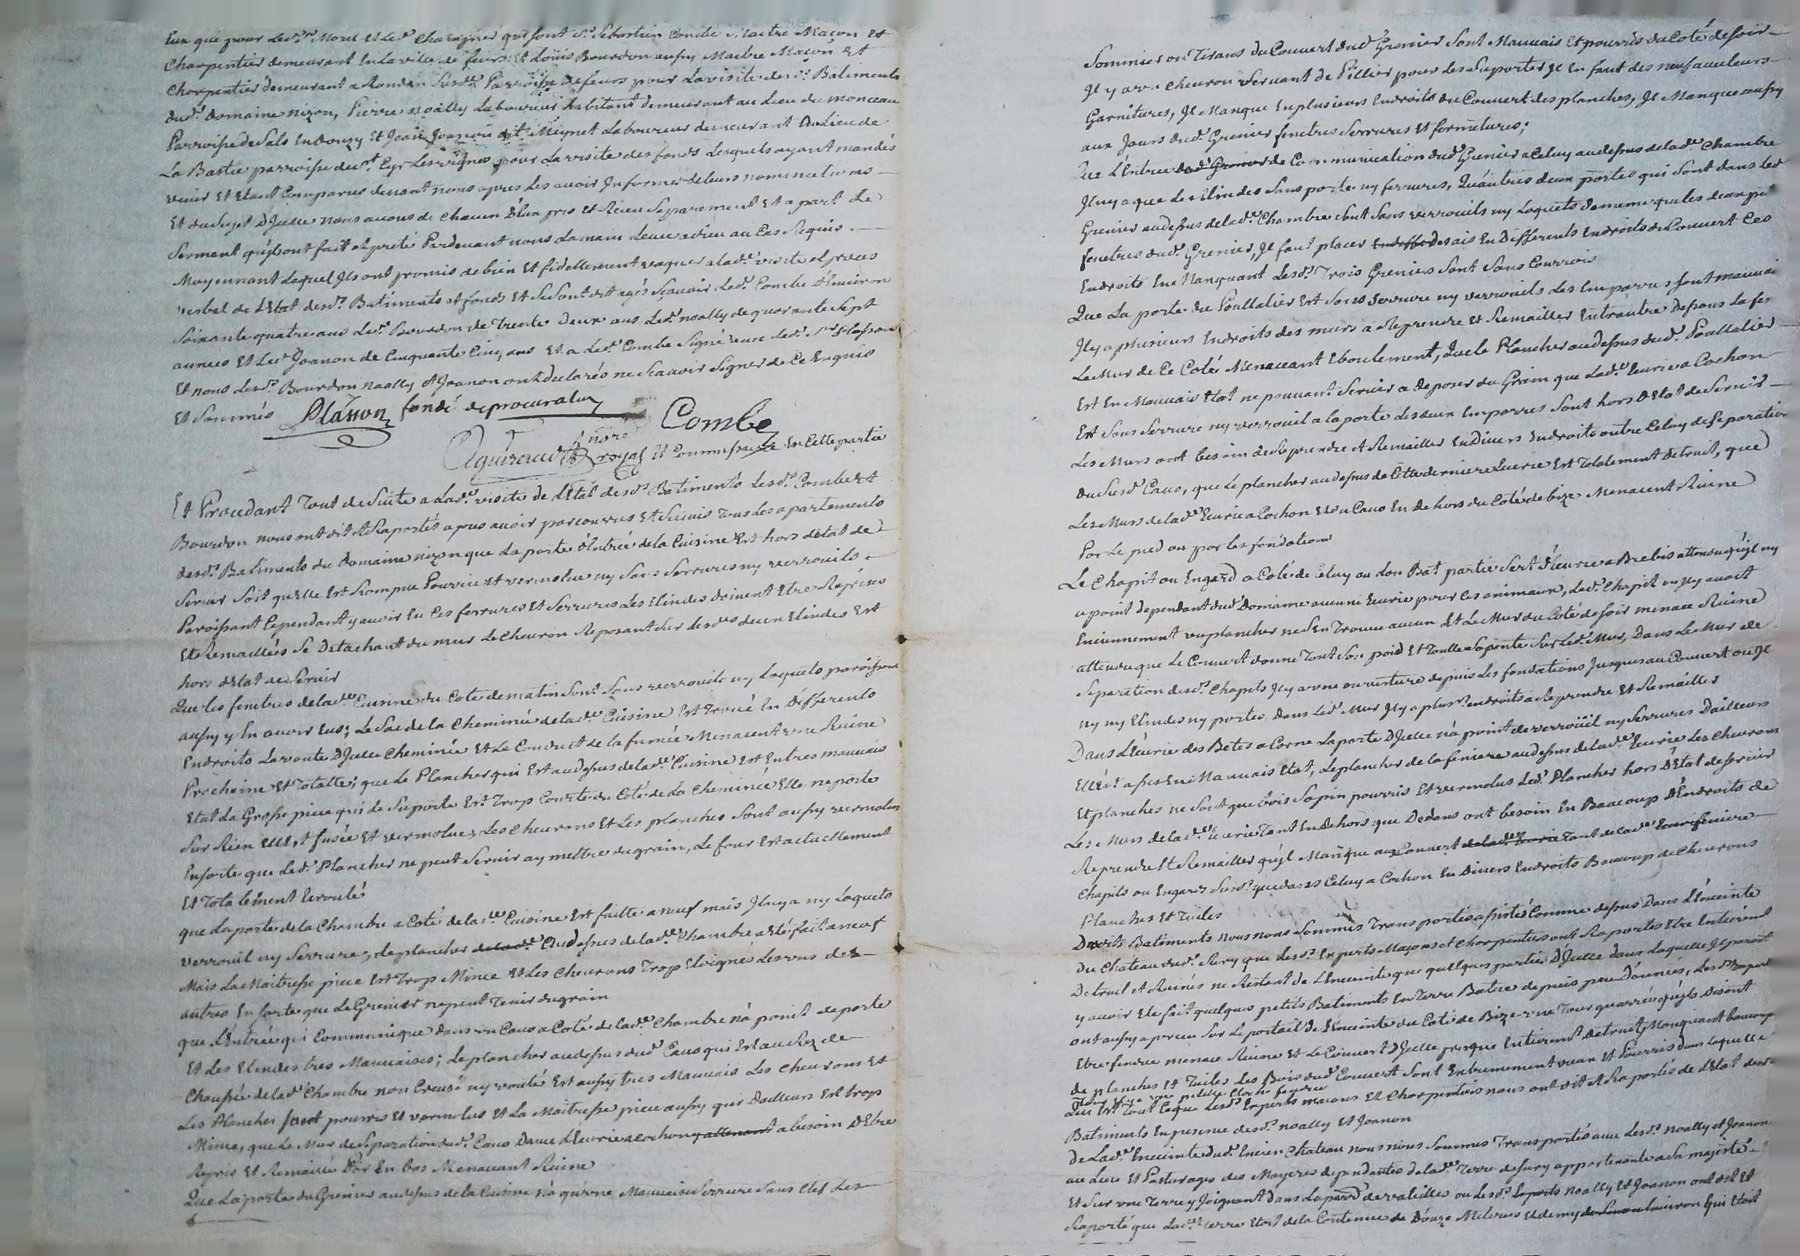 Eux que pour led. Sr. Morel et led. Chavagnes qui sont Sr. Sebastien Combe Maitre Maçon et
Charpentier demeurant En la ville de feurs. et Loüis Bourdon aussy Maitre Maçon et
Charpentier demeurant a Randan Susd. Parroisse de feurs pour la visite desd. Batiments
dud. domaine nizon, Pierre noailly Laboureur habitant demeurant au Lieu du monceau
Parroisse de Salt En donzy et Jean Joanon Laboureur demeurant au Lieu de
La Bastie parroisse de st. Cyr Les vignes pour La visite des fonds Lesquels ayant mandés
venir et Etant Comparus devant nous apres Les avoir Informés de leurs nominations
Et du Sujet D'Jcelle nous avons de Chacun D'Eux pris et Receu Separement et a part Le
Serment qu'jls ont fait et preté Pardevant nous La main Levée a dieu au Cas Requis
Moyennant Lequel Jls ont promis de bien et fidellement vaquer a lad. visite et proces
verbal de L'Etat desd. Batiments et fonds et Se Sont dit agés Scavoir Led. Combe d'Environ
Soixante quatre ans Led. Bourdon de Trente deux ans Led. noailly de quarante Sept
années Et Led. Joanon de Cinquante Cinq ans Et a Led. Combe Signé avec led. Sr. Plasson
Et nous Lesd. Bourdon noailly et Joanon ont declarés ne Scavoir Signer de Ce Enquis
Et Sommés Plasson fondé de procuration Combe
nore. royal et Commissaire En Cette partie
Et Procedant Tout de Suite a Lad. visite de L'Etat desd. Batiments Lesd. Combe et
Bourdon nous ont dit et Raportés apres avoir parcourrus Et Suivis Tous Les apartements
desd. Batiments du Domaine nizon que La porte d'Entrée de la Cuisine Est hors d'état de
Servir Soit qu'elle Est Rompue Pourrie et vermolue ny Sans Serrures ny verrouils
Paroissant Cependant y avoir Eu Ces ferrures et Serrures Les Elindes doivent Etre Repries
Et Remaillées Se Detachant du mur Le Chevron Reposant Sur Lesd. deux Elindes Est
hors d'Etat de Servir
Que les fenetres de lad. Cuisine du Coté de matin Sont Sans verrouils ny Loquets paroissant
aussy y En avoir Eus; Le Sac de la Cheminée de lad. Cuisine Est Troué En Differents
Endroits La voute D'Jcelle Cheminée Et Le Conduit de la fumée Menacent une Ruine
Prochaine et Totalle; que Le Plancher qui Est au dessus de lad. Cuisine Est En tres mauvais
Etat La Grosse piece qui Le Suporte Est Trop Courte du Coté de La Cheminée Elle ne porte
Sur Rien Elle est fusée Et vermolue, Les Chevrons Et Les planches Sont aussy vermolus
Ensorte que Led. Plancher ne peut Servir a y mettre du grain, Le four Est actuellement
Et Totalement Ecroulé
que La porte de la Chambre a Coté de la d. Cuisine Est faitte a neuf mais Jl n'y a ny Loquets
verrouil ny Serrure; Le plancher au dessus de lad. Chambre a Eté fait a neuf
Mais La Maitresse piece Est Trop Mince Et Les Chevrons Trop Eloignés Les uns des
autres En sorte que Le Grenier ne peut Tenir du grain
que L'Entrée qui Communique dans un Cave a Coté de lad. Chambre n'a point de porte
Et Les Elindes tres Mauvaises; Le plancher au dessus dud. Cave qui Est au Rez de
Chaussée de lad. Chambre non Creusé ny voulté Est aussy tres Mauvais Les Chevrons Et
Les Planches Sont pourris et vermolus Et La Maitresse piece aussy qui Dailleurs Est trop
Mince, que Le Mur de Separation dud. Cave Davec L'Ecurie a cochon y attenant a besoin D'Etre
Repris Et Remaillé Par En bas Menacant Ruine
Que La porte du Grenier au dessus de la Cuisine n'a qu'une Mauvaise Serrure Sans Clef Les
Sommiers ou Tirans du Couvert dud. Grenier Sont Mauvais Et pourris du Coté de Soir
Jl y a un Chevron Servant de Pillier pour Les Suporter Jl En faut des neufs avec leurs
Garnitures, Jl Manque En plusieurs Endroits du Couvert des planches, Jl Manque aussy
aux Jours dud. Grenier fenetres Serrures Et fermetures;
Que L'Entrée dud. Grenier de Communication dud. Grenier a Celuy au dessus de lad. Chambre
Jl n'y a que Les Elindes Sans porte ny ferrures, Qu'autres deux portes qui Sont dans Led.
Grenier au dessus de lad. Chambre Sont Sans verrouils ny Loquets de meme que les deux petites
fenetres dud. Grenier, Jl faut placer des ais En Differents Endroits du Couvert Ces
Endroits En Manquant Lesd. Trois Greniers Sont Sans Courroirs
Que La porte du Poullalier Est Sans Serrure ny verrouils Les Emparres Sont mauvais
Jl y a plusieurs Endroits des murs a Reprendre Et Remailler Entrautre Dessous La fen
Le Mur de Ce Coté Menaceant Eboulement, que Le Plancher au dessus dud. Poullalier
Est En Mauvais Etat ne pouvant Servir a deposer du Grain que Lad. Ecurie a Cochon
Est Sans Serrure ny verrouil a la porte Les deux Emparres Sont hors D'Etat de Servir
Les Murs ont besoin de Reprendre et Remailler En Divers Endroits outre Celuy de Separation
du Susd. Cave, que Le plancher au dessus de Cette derniere Ecurie Est Totalement Detruit, que
Les Murs de lad. Ecurie a Cochon Et a Cave En dehors du Coté de bize Menacent Ruine
Par Le pied ou par les fondations
Le Chapit ou Engard a Coté de Celuy au don Bat partie Sert d'Ecurie a Brebis attendu qu'jl ny
a point dependant dud. Domaine aucune Ecurie pour Ces animaux, Led. Chapit ou Jl y avoit
Enciennement un plancher ne S'En Trouve aucun Et Le Mur du Coté de Soir menace Ruine
attendu que Le Couvert donne Tout Son poid Et Toute La pointe Sur Led. Mur, Dans Le Mur de
Separation desd. Chapits Jl y a une ouverture depuis Les fondations Jusques au Couvert ou Jl
ny ny Elindes ny portes dans Led. Mur Jl y a plus. Endroits a Reprendre Et Remailler
Dans L'Ecurie des Betes a Corne La porte D'Jcelle n'a point de verroüil ny Serrures Dailleurs
Elle Est assés En Mauvais Etat, Le plancher de la feniere au dessus de lad. Ecurie Les Chevrons
Et planches ne Sont que bois Sapin pourris Et vermolus Led. Plancher hors D'Etat de Servir
Les Murs de lad. Ecurie Tant En dehors que Dedans ont besoin En Beaucoup D'Endroits de
Reprendre Et Remailler qu'jl Manque au Couvert de lad. Ecurie Tant de lad. feniere
Chapits ou Engards Susd. que dans Celuy a Cochon En Divers Endroits Beaucoup de Chevrons
Planches Et Tuiles
Desdits Batiments nous nous Sommes Transportés assistés Comme dessus Dans L'Enceinte
du Chateau dud. Sury que Lesd. Experts Maçons et Charpentiers ont Raportés Etre Entierement
Detruit et Ruinés ne Restant de L'Enceinte que quelques parties D'Jcelle dans Laquelle Jl paroit
y avoir Eté fait quelques petits Batiments En Terre Battue depuis peu D'années, Lesd. Experts
ont aussy aperceu Sur Le portail de L'Enceinte du Coté de Bize une Tour quarrée qu'jls Disent
Etre fendue menace Ruine Et Le Couvert D'Jcelle presque Entierement detruit Manquant beaucoup
de planches Et Tuiles Les Bois dud. Couvert Sont Entierement vieux Et Pourris dans Laquelle
Tour Jl y a une petite Cloche
Qui Est Tout Ce que Lesd. Experts macons Et Charpentiers nous ont dit et Raportés de L'Etat desd.
Batiments En presence desd. noailly Et Joanon
De Lad. Enceinte dud. Encien Chateau nous nous Sommes Transportés avec Lesd. noailly et Joanon
au Lieu Et Pasturages des Mayeres dependantes de lad. Terre de Sury appartenante a Sa majesté
Et Sur une Terre y Joignant Dans La part de ou Lesd. Experts noailly Et Joanon ont dit Et
Raporté que La d. Terre Etoit de la Contenue de Douze Meterées Et demy qui Etoit